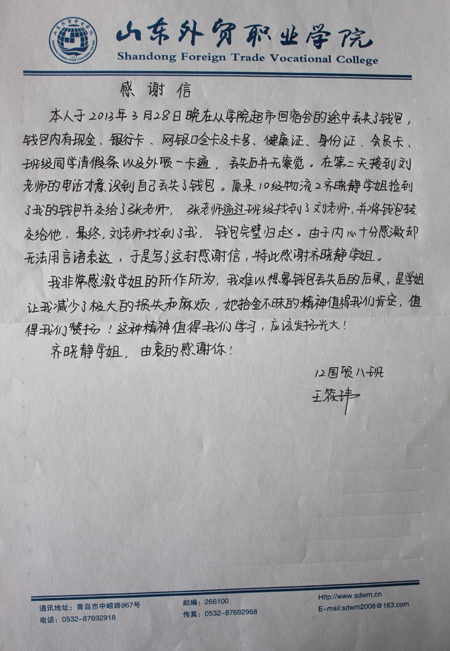 山东外贸职业学院
Shandong Foreign Trade Vocational College
感谢信
本人于2013年3月28日晚在从学院超市回宿舍的途中丢失了钱包,
钱包内有现金、银行卡、网银口令卡及卡号、健康证、身份证、会员卡、
班级同学请假条以及外贸一卡通,丢失后并无察觉。在第二天接到刘
老师的电话才意识到自己丢失了钱包。原来10级物流2齐晓静学姐捡到
了我的钱包并交给了张老师,张老师通过班级找到了刘老师,并将钱包转
交给他,最终,刘老师找到了我,钱包完璧归赵。由于内心十分感激却
无法用言语表达,于是写了这封感谢信,特此感谢齐晓静学姐。
我非常感激学姐的所作所为,我难以想象钱包丢失后的后果,是学姐
让我减少了极大的损失和麻烦,她拾金不昧的精神值得我们肯定,值
得我们赞扬!这种精神值得我们学习,应该发扬光大!
齐晓静学姐,由衷的感谢你!
12国贸八班
王筱玮
通讯地址:青岛市中崂路967号
邮编:266100
Http://www.sdwm.cn
电话:0532-87692918
传真:0532-87692968
E-mail:sdwm2008@163.com